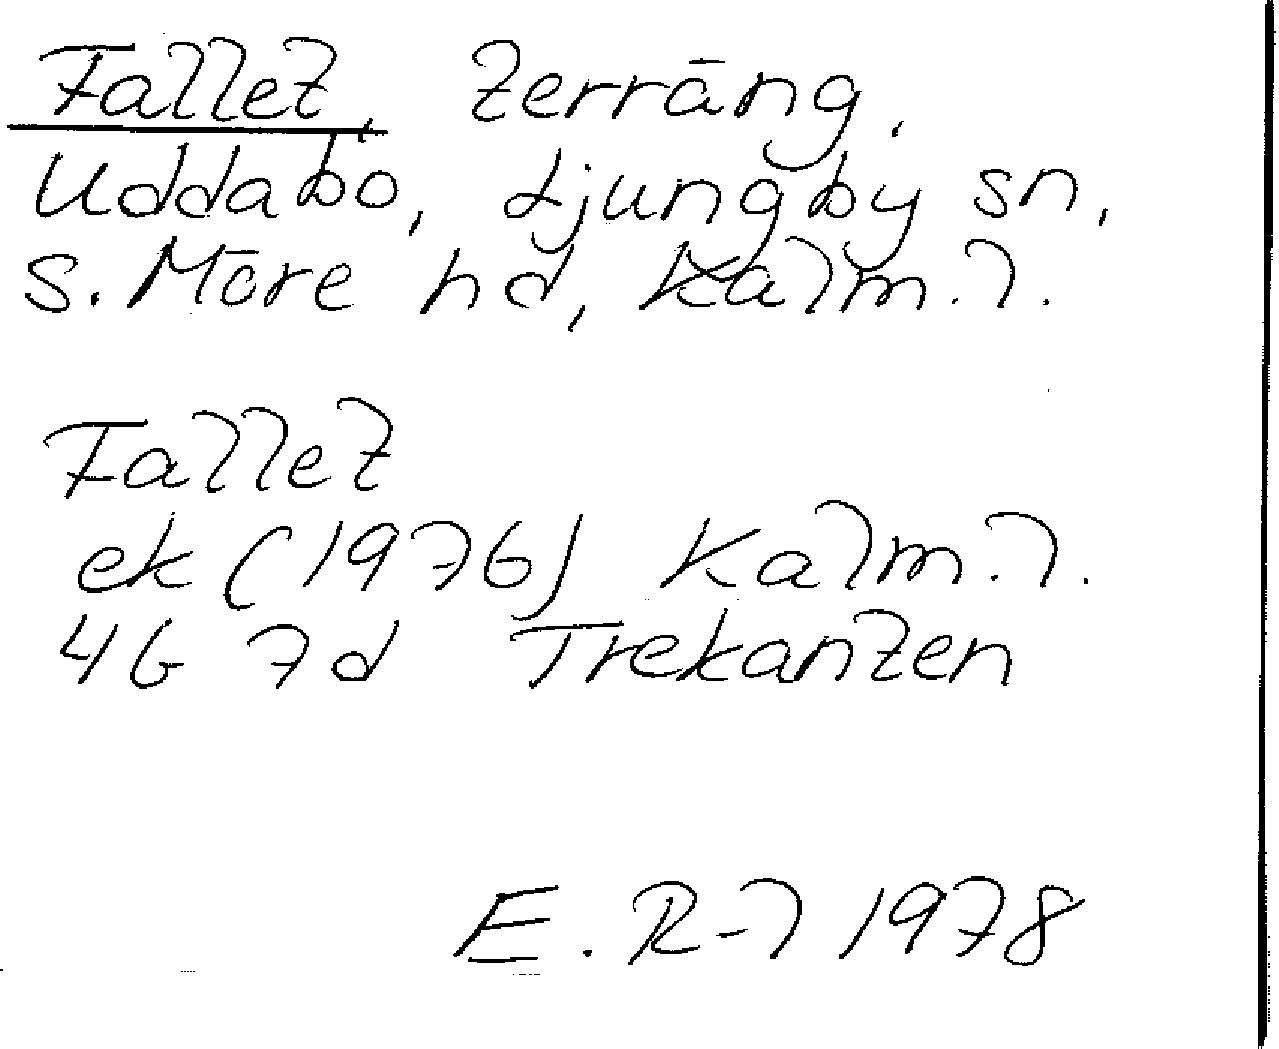 Fallet, terräng.
Uddabo, Ljungby sn,
S. Möre hd, Kalm. l.
Fallet
ek (1976) Kalm. l.
4G 7d Trekanten
E. R-l 1978